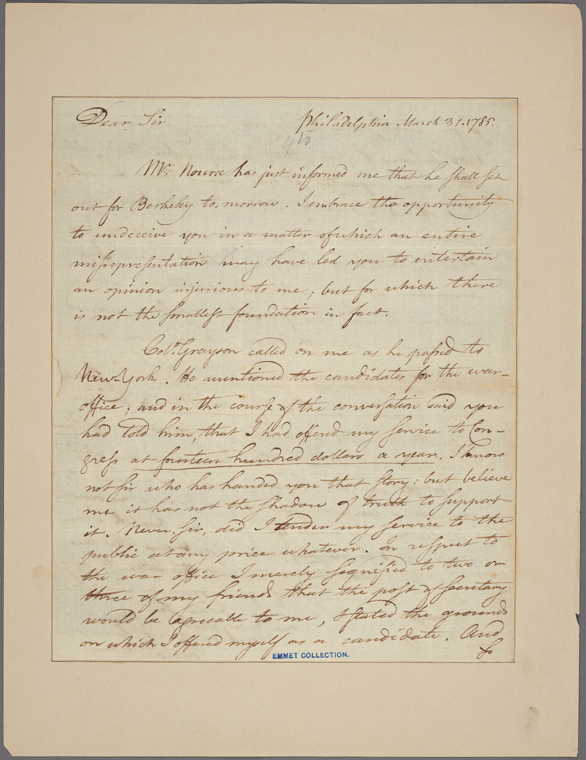 Dear Sir
Philadelphia March 31. 1785.
Mr. Nourse has just informed me that he shall set
out for Berkeley to morrow. I embrace the opportunity
to undeceive you in a matter of which an entire
misrepresentation may have led you to entertain
an opinion injurious to me; but for which there
is not the smallest foundation in fact.
Colo. Grayson called on me as he passed to
New-York. He mentioned the candidates for the war-
office; and in the course of the conversation said you
had told him, that I had offered my service to Con-
gress at fourteen hundred dollars a year. I know
not Sir who has handed you that story: but believe
me it has not the shadow of truth to support
it. Never, Sir, did I tender my service to the
public at any price whatever. In respect to
the war office I merely signified to two or
three of my friends that the post of Secretary
would be agreeable to me, & stated the grounds
on which I offered myself as a candidate. And
so
EMMET COLLECTION.